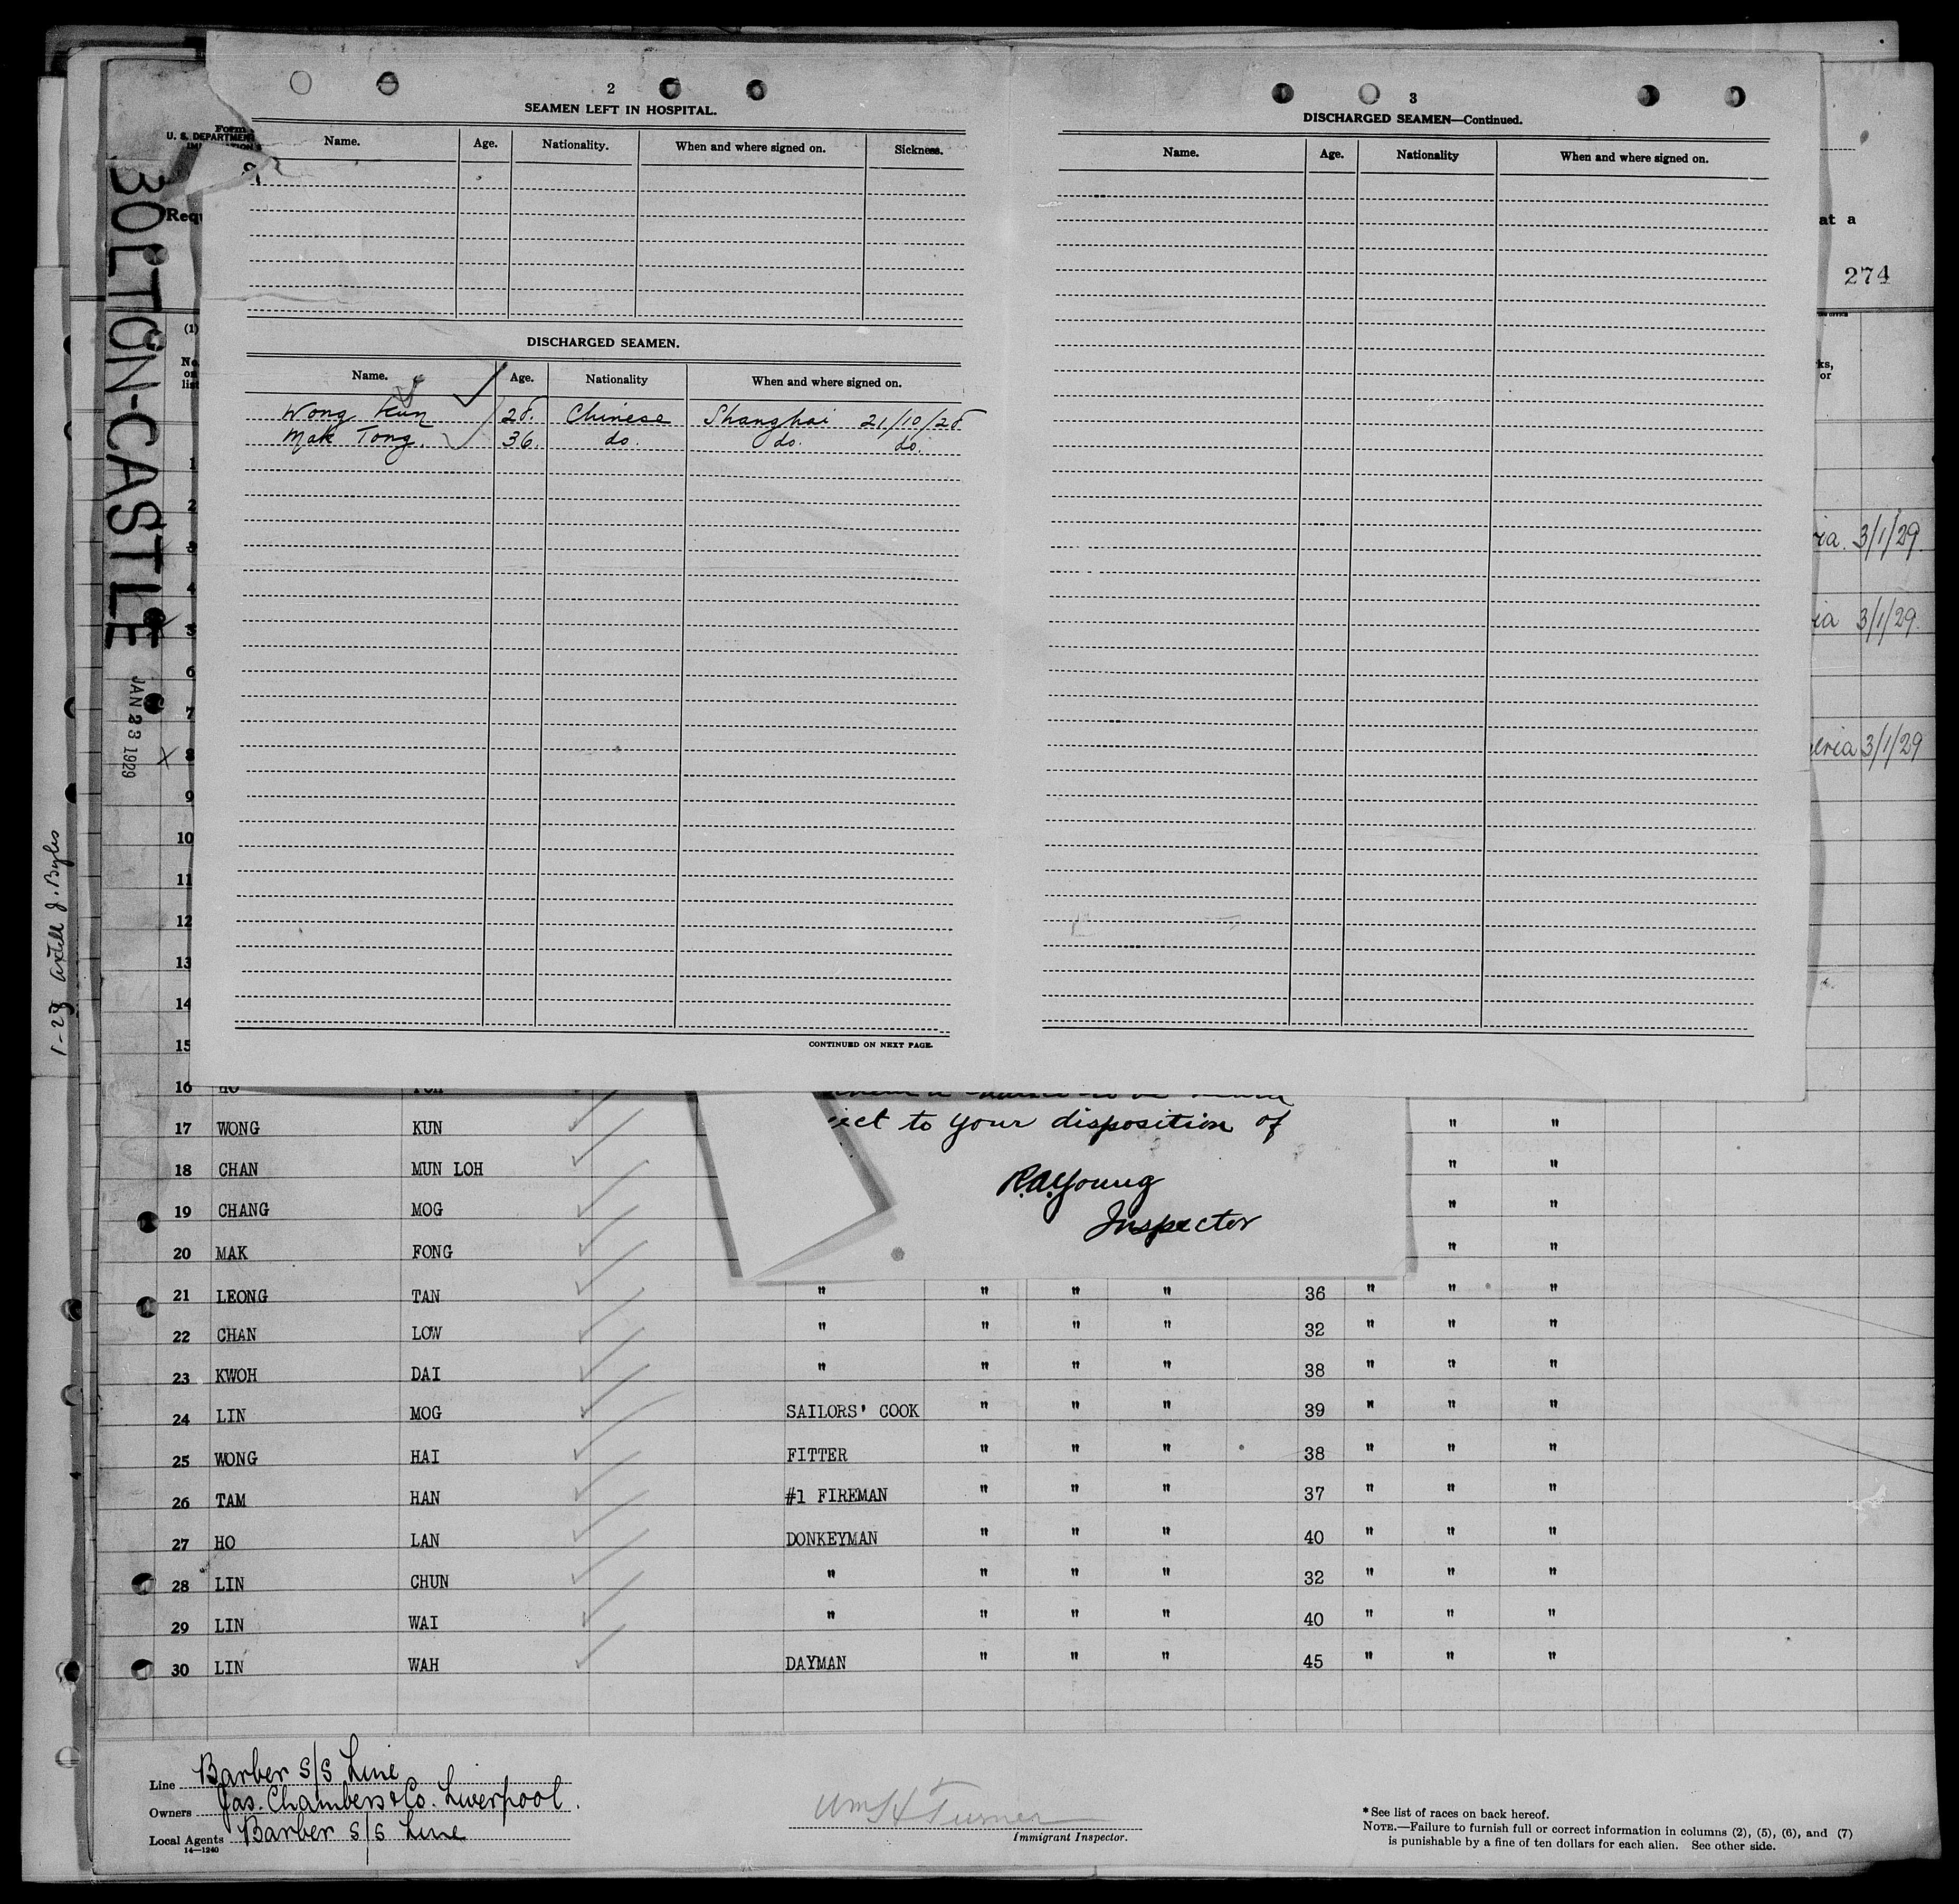 2
SEAMEN LEFT IN HOSPITAL.
Name. Age. Nationality. When and where signed on. Sickness.
DISCHARGED SEAMEN.
Name. Age. Nationality When and where signed on.
Wong Kun 28. Chinese Shanghai 21/10/28
Mak Tong. 36. do. do. do.
CONTINUED ON NEXT PAGE.
3
DISCHARGED SEAMEN—Continued.
Name. Age. Nationality When and where signed on.
Form
U. S. DEPARTMENT
BOLTON-CASTLE
JAN 23 1929
1-28 Axtell J. Byles
at a
274
(1)
No.
on
list
ks,
or
1
2
3
ia. 3/1/29
4
5
ia 3/1/29.
6
7
X 8
eria 3/1/29
9
10
11
12
13
14
15
16 HO
ject to your disposition of
R.A. Young
Inspector
17 WONG KUN " "
18 CHAN MUN LOH " "
19 CHANG MOG " "
20 MAK FONG " "
21 LEONG TAN " " " " 36 " " "
22 CHAN LOW " " " " 32 " " "
23 KWOH DAI " " " " 38 " " "
24 LIN MOG SAILORS' COOK " " " 39 " " "
25 WONG HAI FITTER " " " 38 " " "
26 TAM HAN #1 FIREMAN " " " 37 " " "
27 HO LAN DONKEYMAN " " " 40 " " "
28 LIN CHUN " " " " 32 " " "
29 LIN WAI " " " " 40 " " "
30 LIN WAH DAYMAN " " " 45 " " "
Line Barber S/S Line
Owners Jas. Chambers & Co. Liverpool.
Local Agents Barber S/S Line
14—1240
Wm H Turner
Immigrant Inspector.
* See list of races on back hereof.
NOTE.—Failure to furnish full or correct information in columns (2), (5), (6), and (7)
is punishable by a fine of ten dollars for each alien. See other side.